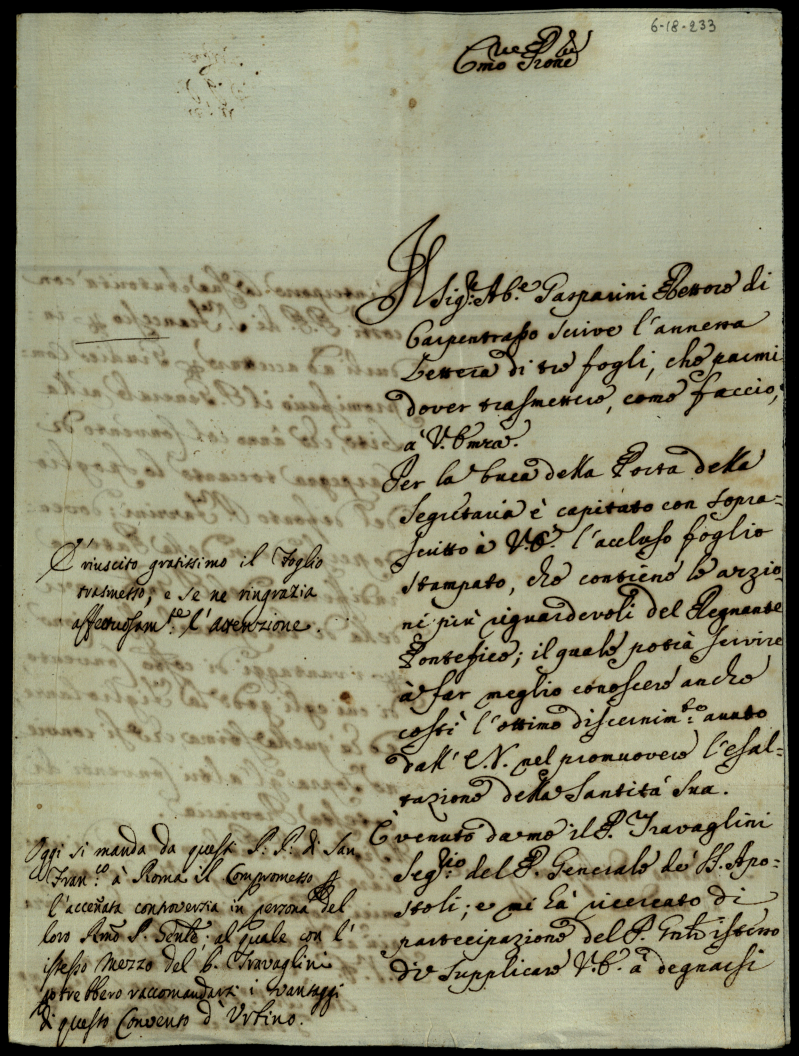 6-18-233
Emo e Rmo Prone
Il Sigr. Ab.e Gasparini Rettore di
Carpentrasso scrive l'annessa
Lettera di tre fogli, che parmi
dover trasmettere, come faccio,
à V. Emza.
Per la buca della Porta della
Segretaria è capitato con sopra=
scritto à V. E. l'accluso foglio
stampato, che contiene le azzio=
ni più riguardevoli del Regnante
Pontefice; il quale potrà servire
à far meglio conoscere anche
costì l'ottimo discernim.to avuto
dall' E. V. nel promuovere l'esal=
tazione della Santità Sua.
È venuto da me il P. Travaglini
Seg.rio del P. Generale de' SS. Apo=
stoli; e mi hà ricercato di
partecipazione del P. Gnle istesso
di supplicare V. E. à degnarsi
E' riuscito gratissimo il Foglio
trasmesso, e se ne ringrazia
affettuosam.te l'attenzione.
Oggi si manda da questi P. P. di San
Fran.co à Roma il Compromesso p
l'accennata controversia in persona del
loro Rmo P. Genle, al quale con l'
istesso mezzo del P. Travaglini
potrebbero raccomandarsi i vantaggi
di questo Convento d'Urbino.